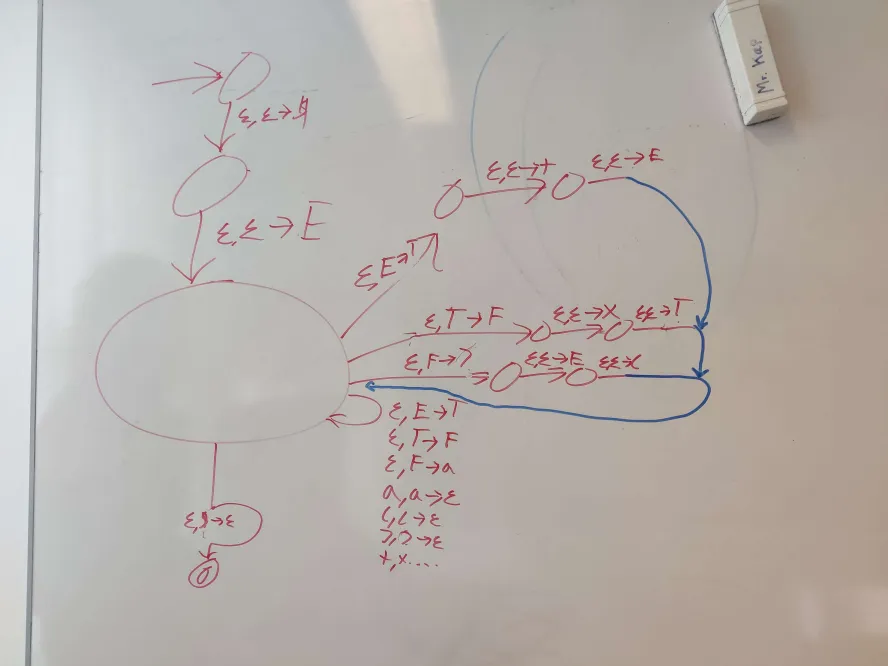 Mr. Kap
ε, ε→$
ε,ε→E
ε,ε→+
ε,ε→E
ε,E→T
ε,T→F
ε,ε→X
ε,ε→T
ε,F→)
ε,ε→E
ε,ε→(
ε, E→T
ε, T→F
ε, F→a
a, a→ε
(, (→ε
), )→ε
+, x....
ε,$→ε